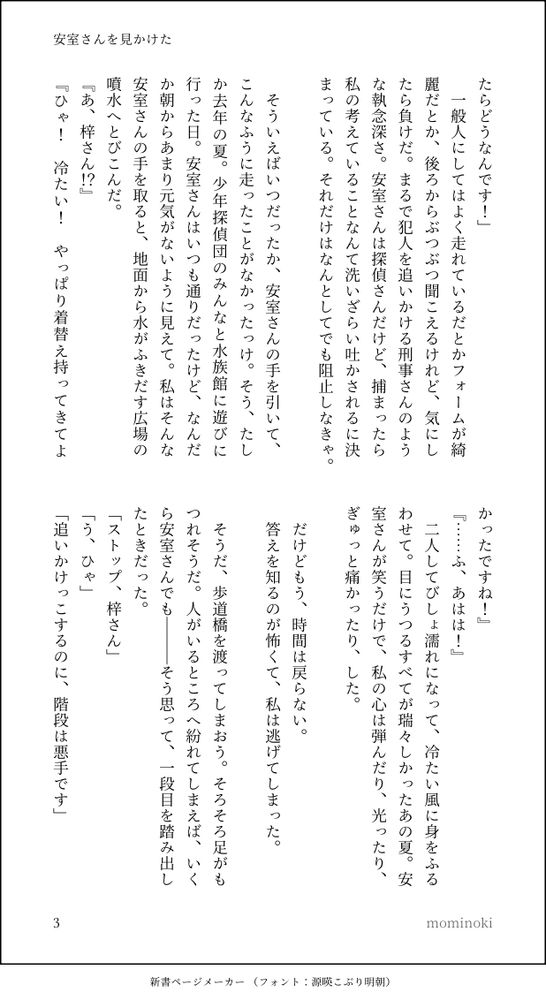 安室さんを見かけた
たらどうなんです！」
　一般人にしてはよく走れているだとかフォームが綺
麗だとか、後ろからぶつぶつ聞こえるけれど、気にし
たら負けだ。まるで犯人を追いかける刑事さんのよう
な執念深さ。安室さんは探偵さんだけど、捕まったら
私の考えていることなんて洗いざらい吐かされるに決
まっている。それだけはなんとしてでも阻止しなきゃ。
　そういえばいつだったか、安室さんの手を引いて、
こんなふうに走ったことがなかったっけ。そう、たし
か去年の夏。少年探偵団のみんなと水族館に遊びに
行った日。安室さんはいつも通りだったけど、なんだ
か朝からあまり元気がないように見えて。私はそんな
安室さんの手を取ると、地面から水がふきだす広場の
噴水へとびこんだ。
『あ、梓さん!?』
『ひゃ！　冷たい！　やっぱり着替え持ってきてよ
かったですね！』
『……ふ、あはは！』
　二人してびしょ濡れになって、冷たい風に身をふる
わせて。目にうつるすべてが瑞々しかったあの夏。安
室さんが笑うだけで、私の心は弾んだり、光ったり、
ぎゅっと痛かったり、した。
　だけどもう、時間は戻らない。
　答えを知るのが怖くて、私は逃げてしまった。
　そうだ、歩道橋を渡ってしまおう。そろそろ足がも
つれそうだ。人がいるところへ紛れてしまえば、いく
ら安室さんでも――そう思って、一段目を踏み出し
たときだった。
「ストップ、梓さん」
「う、ひゃ」
「追いかけっこするのに、階段は悪手です」
3
mominoki
新書ページメーカー（フォント：源暎こぶり明朝）